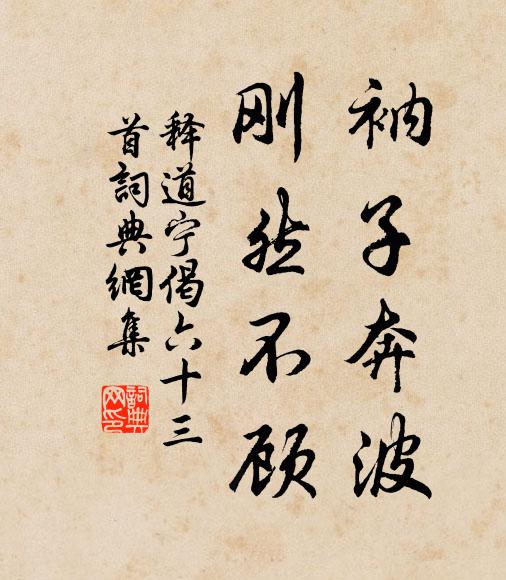 衲子奔波
刚然不顾
释道宁偈六十三
首詞典網集
詞典
网印